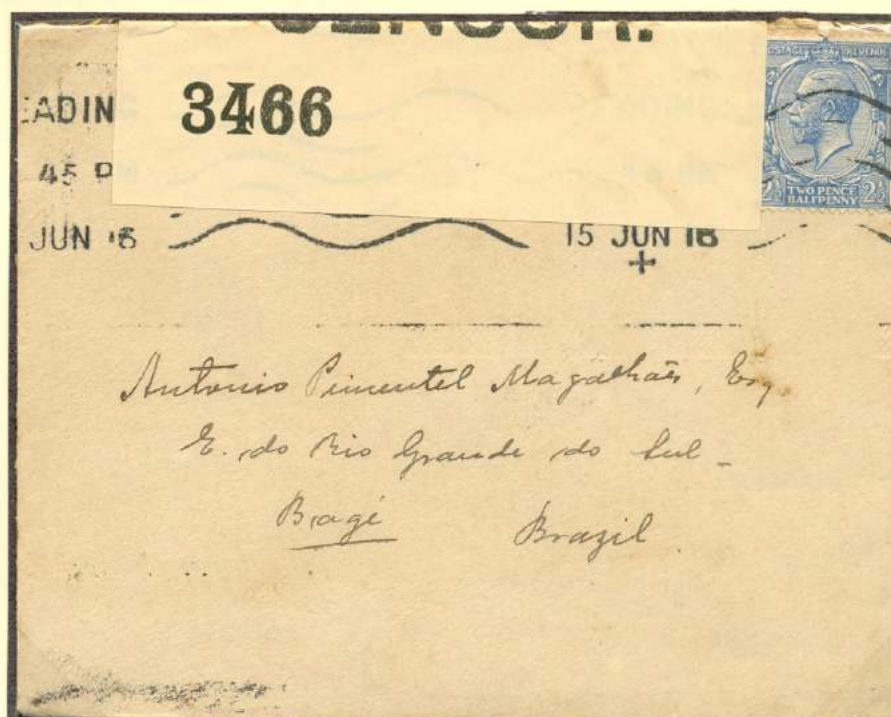 CENSOR.
3466
EADIN
45 P
JUN 16
15 JUN 16
POSTAGE & REVENUE
2½ TWO PENCE 2½
HALFPENNY
Antonio Pimentel Magalhães, Esq.
E. do Rio Grande do Sul -
Bagé Brazil